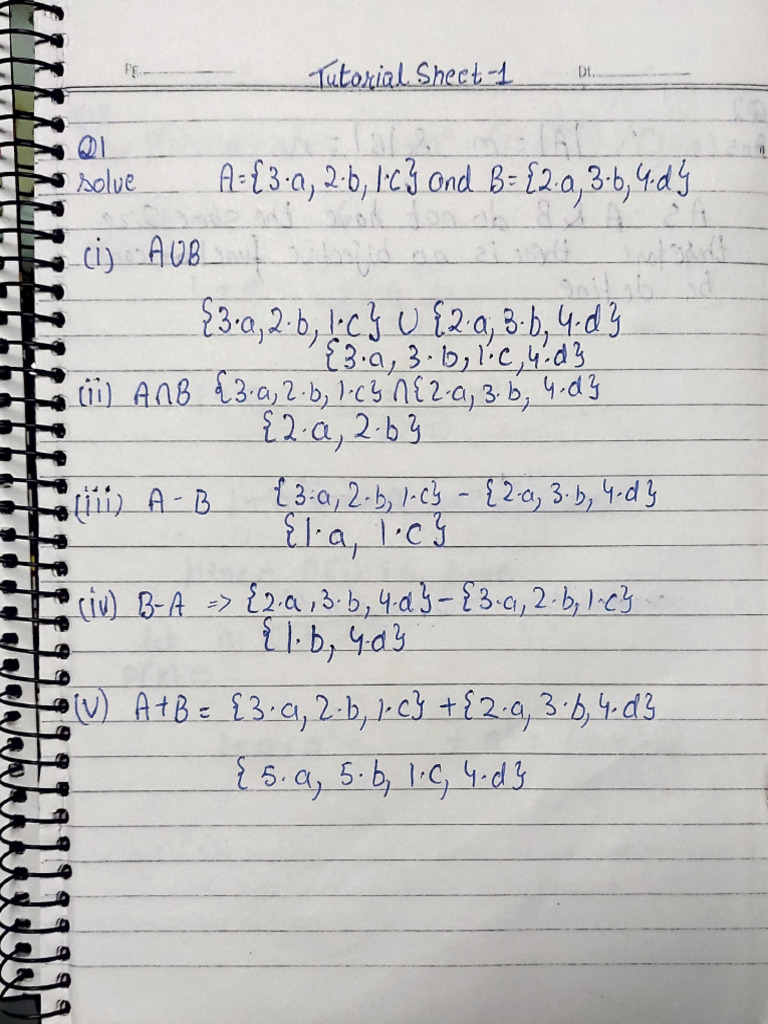 Pg. Tutorial Sheet-1 Dt.
Q1
solve A={3·a, 2·b, 1·c} and B={2·a, 3·b, 4·d}
(i) A∪B
{3·a, 2·b, 1·c} ∪ {2·a, 3·b, 4·d}
{3·a, 3·b, 1·c, 4·d}
(ii) A∩B {3·a, 2·b, 1·c} ∩ {2·a, 3·b, 4·d}
{2·a, 2·b}
(iii) A - B {3·a, 2·b, 1·c} - {2·a, 3·b, 4·d}
{1·a, 1·c}
(iv) B-A => {2·a, 3·b, 4·d} - {3·a, 2·b, 1·c}
{1·b, 4·d}
(v) A+B = {3·a, 2·b, 1·c} + {2·a, 3·b, 4·d}
{5·a, 5·b, 1·c, 4·d}